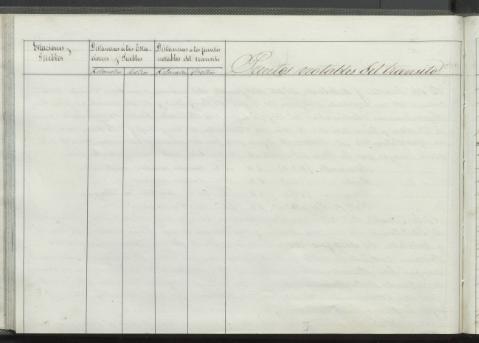 Estaciones y
Pueblos
Distancias à las Esta-
ciones y Pueblos
Kilometros Metros
Distancias à los puntos
notables del transito
Kilometros Metros
Puntos notables del transito